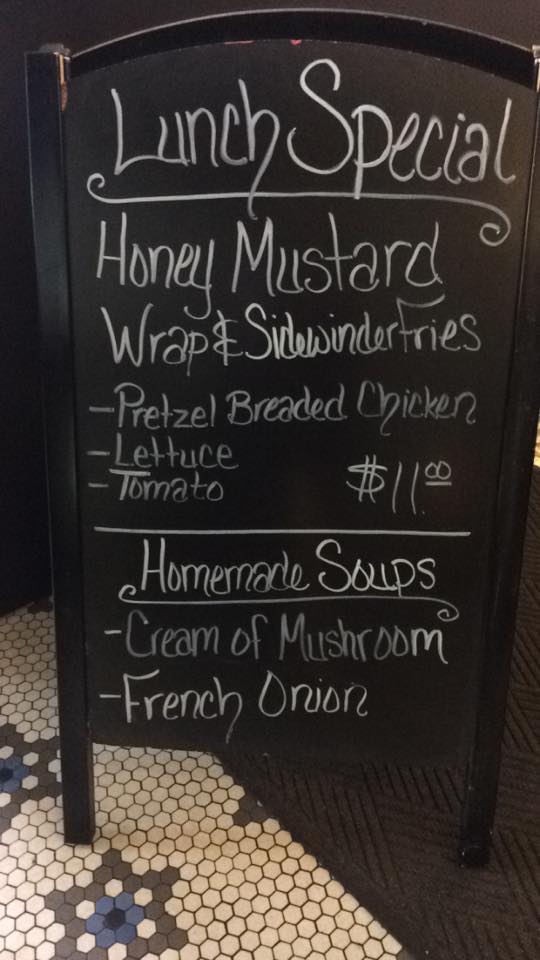 Lunch Special
Honey Mustard
Wrap & Sidewinder Fries
- Pretzel Breaded Chicken
- Lettuce
- Tomato $11.00
Homemade Soups
- Cream of Mushroom
- French Onion